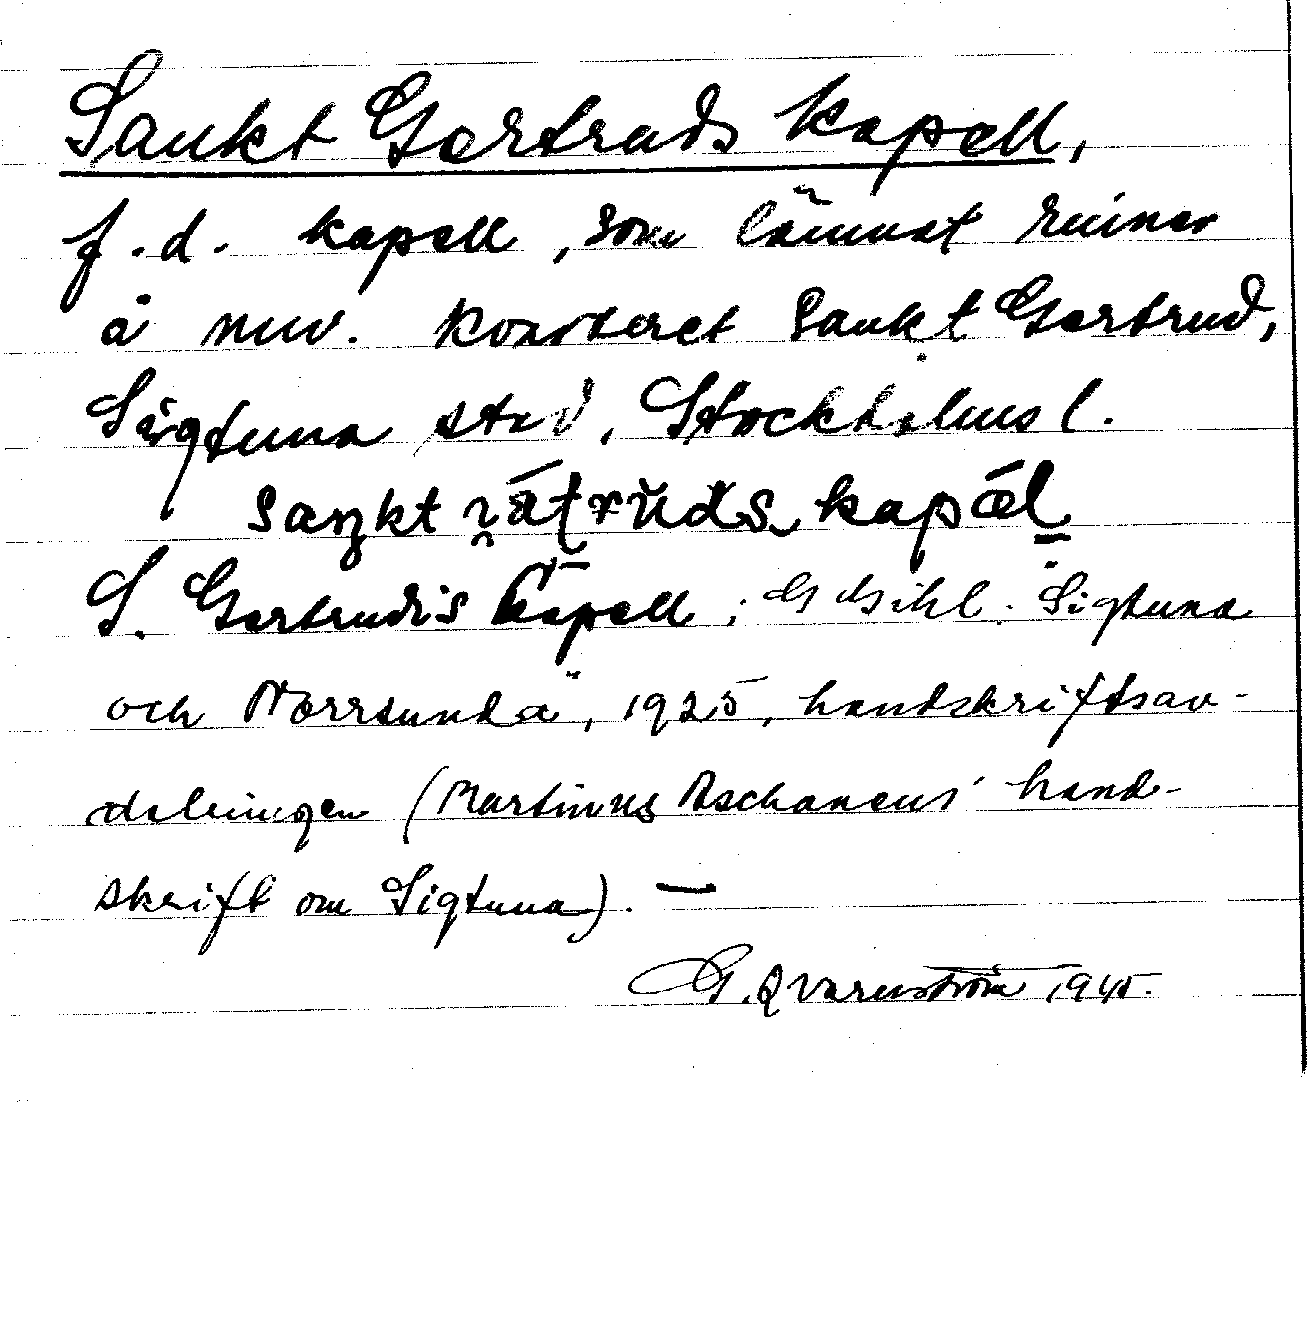 Sankt Gertruds kapell,
f.d. kapell, som lämnat ruiner
å nuv. kvarteret Sankt Gertrud,
Sigtuna stad, Stockholms l.
S. Gertrudis Kapell; G Gihl. "Sigtuna
och Norrsunda", 1925, handskriftsav-
delningen (Martinus Aschaneus' hand-
skrift om Sigtuna). —
G. Qvarnström 1945.